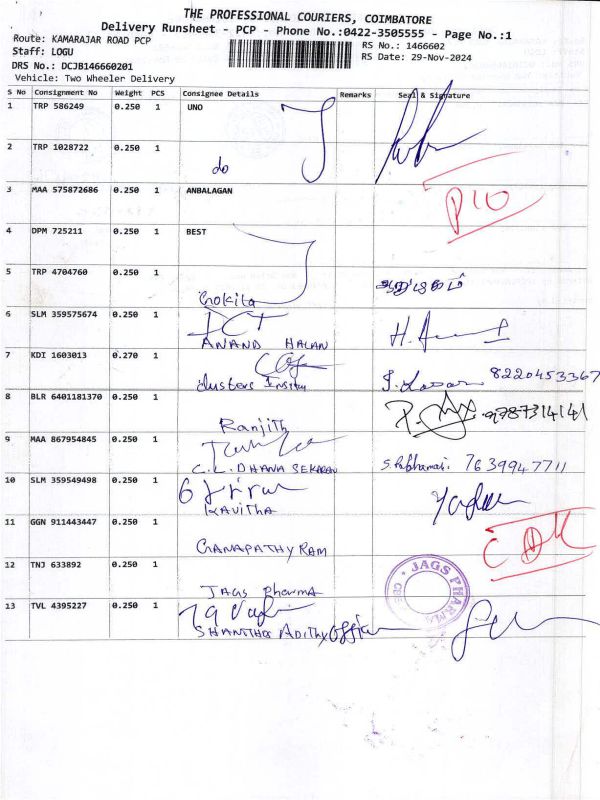 THE PROFESSIONAL COURIERS, COIMBATORE
Delivery Runsheet - PCP - Phone No.:0422-3505555 - Page No.:1
Route: KAMARAJAR ROAD PCP
Staff: LOGU
DRS No.: DCJB146660201
Vehicle: Two Wheeler Delivery
RS No.: 1466602
RS Date: 29-Nov-2024
S No Consignment No Weight PCS Consignee Details Remarks Seal & Signature
1 TRP 586249 0.250 1 UNO
2 TRP 1028722 0.250 1
do
3 MAA 575872686 0.250 1 ANBALAGAN
4 DPM 725211 0.250 1 BEST
5 TRP 4704760 0.250 1
Gokila
6 SLM 359575674 0.250 1
ANAND HALAN
7 KDI 1603013 0.270 1
clusters 8220453367
8 BLR 6401181370 0.250 1
Ranjith 9787314141
9 MAA 867954845 0.250 1
C.L. DHANA SEKARAN 7639947711
10 SLM 359549498 0.250 1
KAVITHA
11 GGN 911443447 0.250 1
GANAPATHY RAM
12 TNJ 633892 0.250 1
JAGS Pharma
JAGS PHARMA
13 TVL 4395227 0.250 1